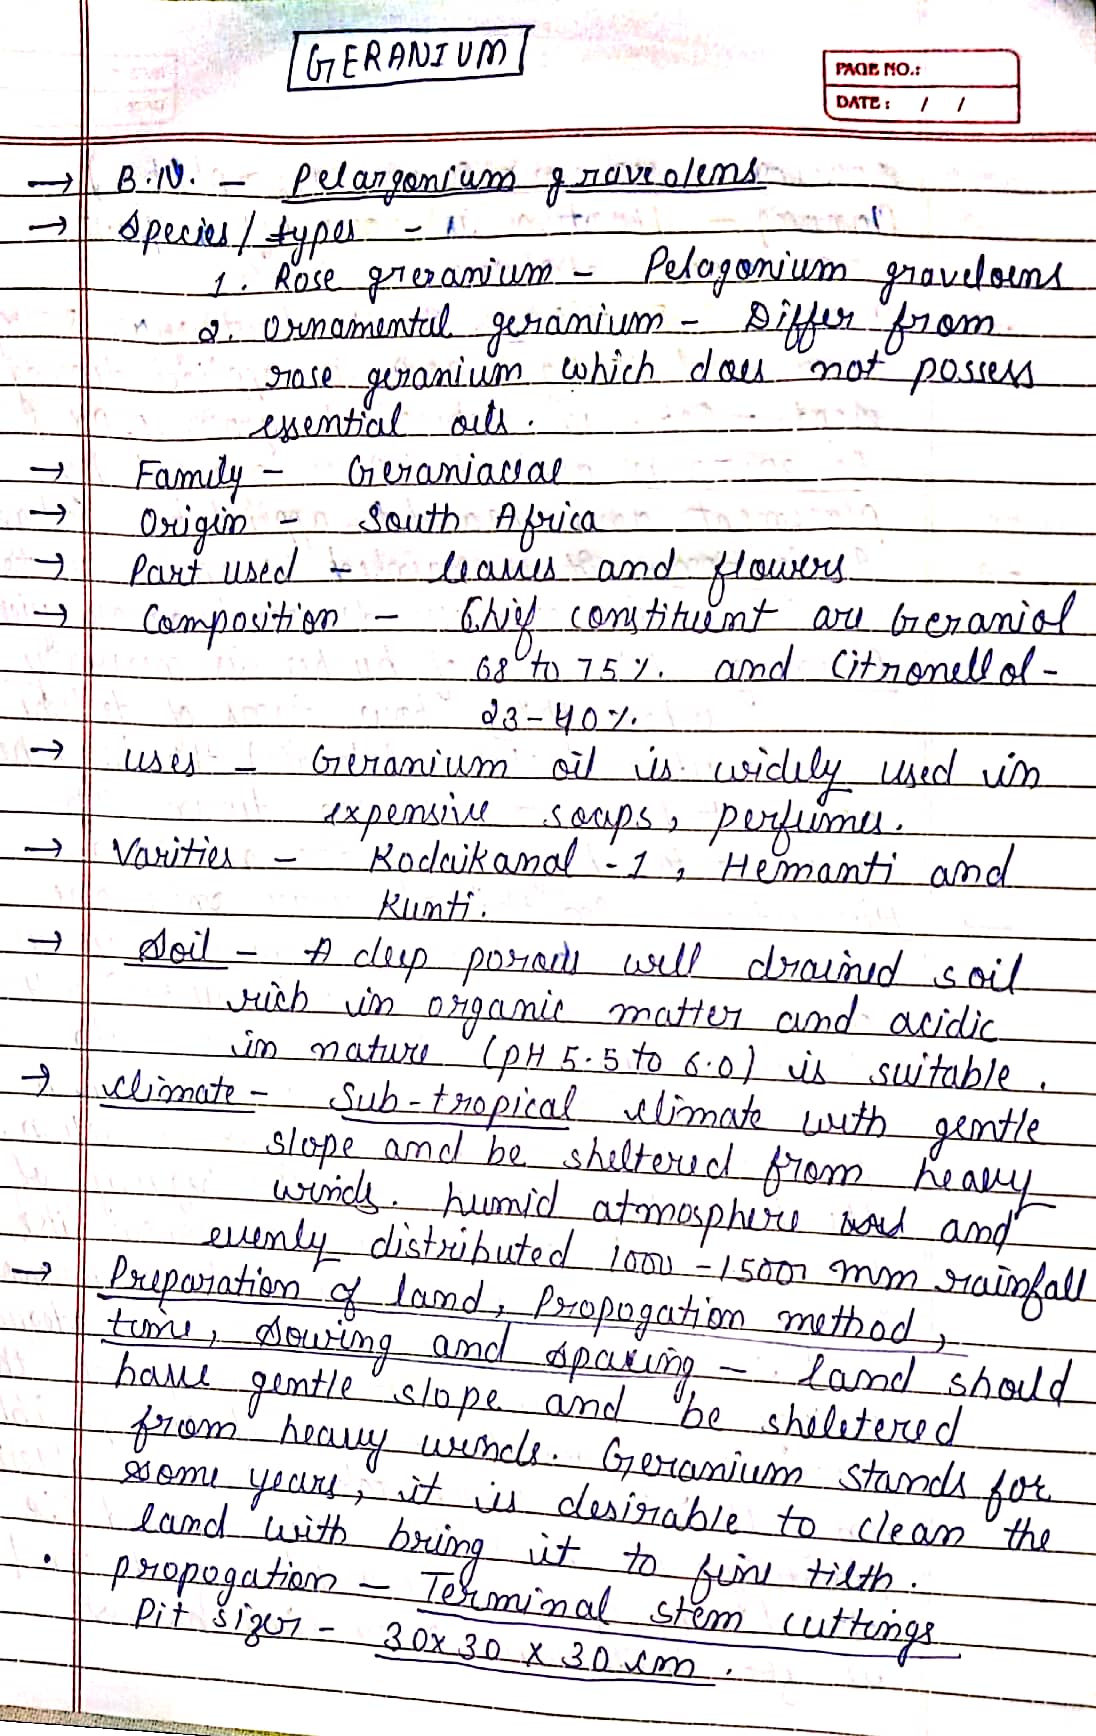 GERANIUM
PAGE NO.:
DATE: / /
→ B.N. - Pelargonium graveolens
→ Species/types -
1. Rose greranium - Pelagonium graveloens
2. Ornamental geranium - Differ from
rose geranium which does not possess
essential oils.
→ Family - Geraniaceae
→ Origin - South Africa
→ Part used - leaves and flowers
→ Composition - Chief constituent are Geraniol
68 to 75%. and Citronellol -
23-40%.
→ uses - Geranium oil is widely used in
expensive soaps, perfumes.
→ Varities - Kodaikanal -1, Hemanti and
Kunti.
→ Soil - A deep porous well drained soil
rich in organic matter and acidic
in nature (pH 5.5 to 6.0) is suitable.
→ climate - Sub-tropical climate with gentle
slope and be sheltered from heavy
winds. humid atmosphere and
evenly distributed 1000 - 1500 mm rainfall
→ Preparation of land, Propogation method,
time, Sowing and spacing - land should
have gentle slope and be sheletered
from heavy winds. Geranium stands for
some years, it is desirable to clean the
land with bring it to fine tilth.
• propogation - Terminal stem cuttings
Pit size - 30x30 x 30 cm.